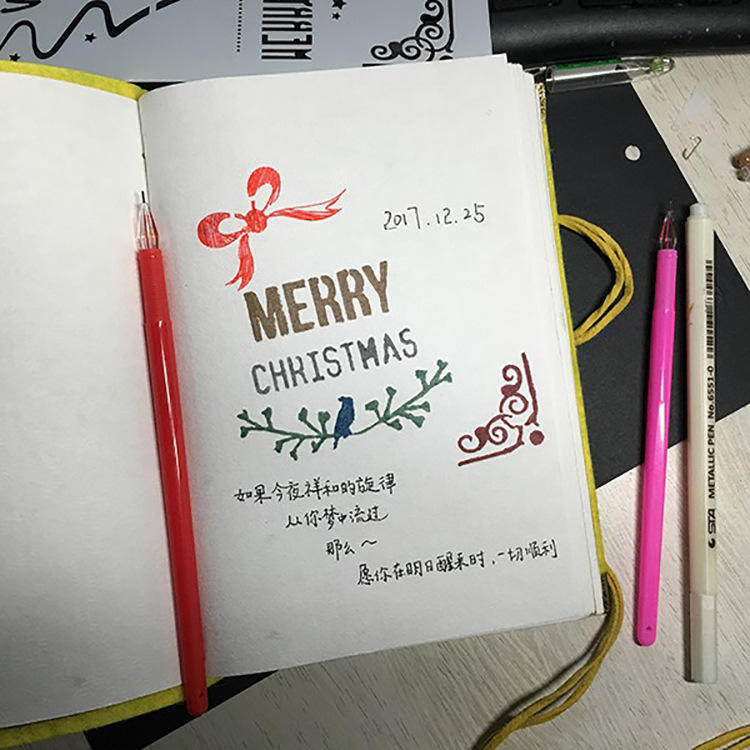 MERRY
2017.12.25
MERRY
CHRISTMAS
如果今夜祥和的旋律
从你梦中流过
那么~
愿你在明日醒来时,一切顺利
STA METALLIC PEN No.6551-0